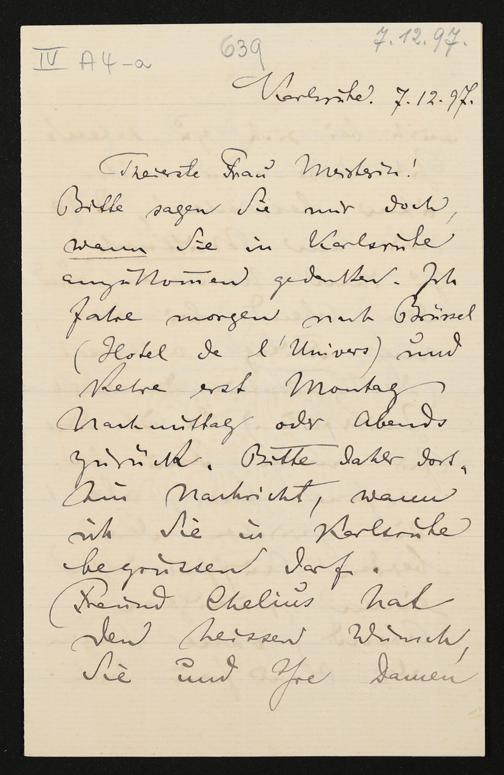 IV A4-a
639
7.12.97.
Karlsruhe. 7.12.97.
Theierste Frau Meisterin!
Bitte sagen Sie mir doch,
wann Sie in Karlsruhe
anzukom̄en gedenken. Ich
fahre morgen nach Brüssel
(Hotel de l'Univers) und
kehre erst Montag
Nachmittag oder Abends
zurück. Bitte daher dort-
hin Nachricht, wann
ich Sie in Karlsruhe
begrüssen darf.
(Freund Chelius hat
den heissen Wunsch,
Sie und Ihre Damen